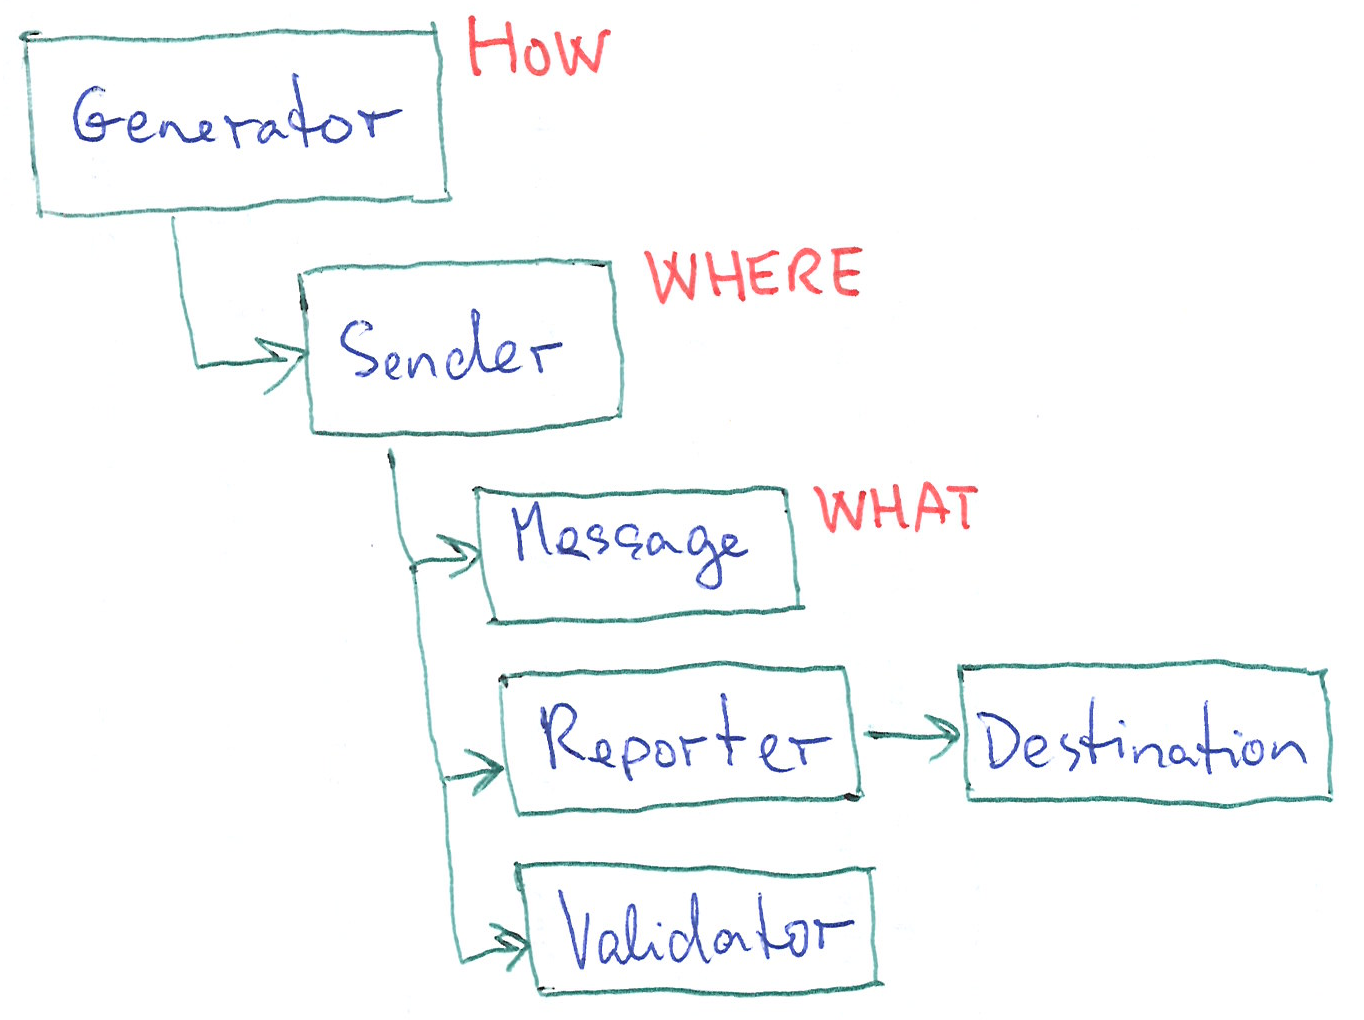 Generator
HOW
Sender
WHERE
Message
WHAT
Reporter
Destination
Validator